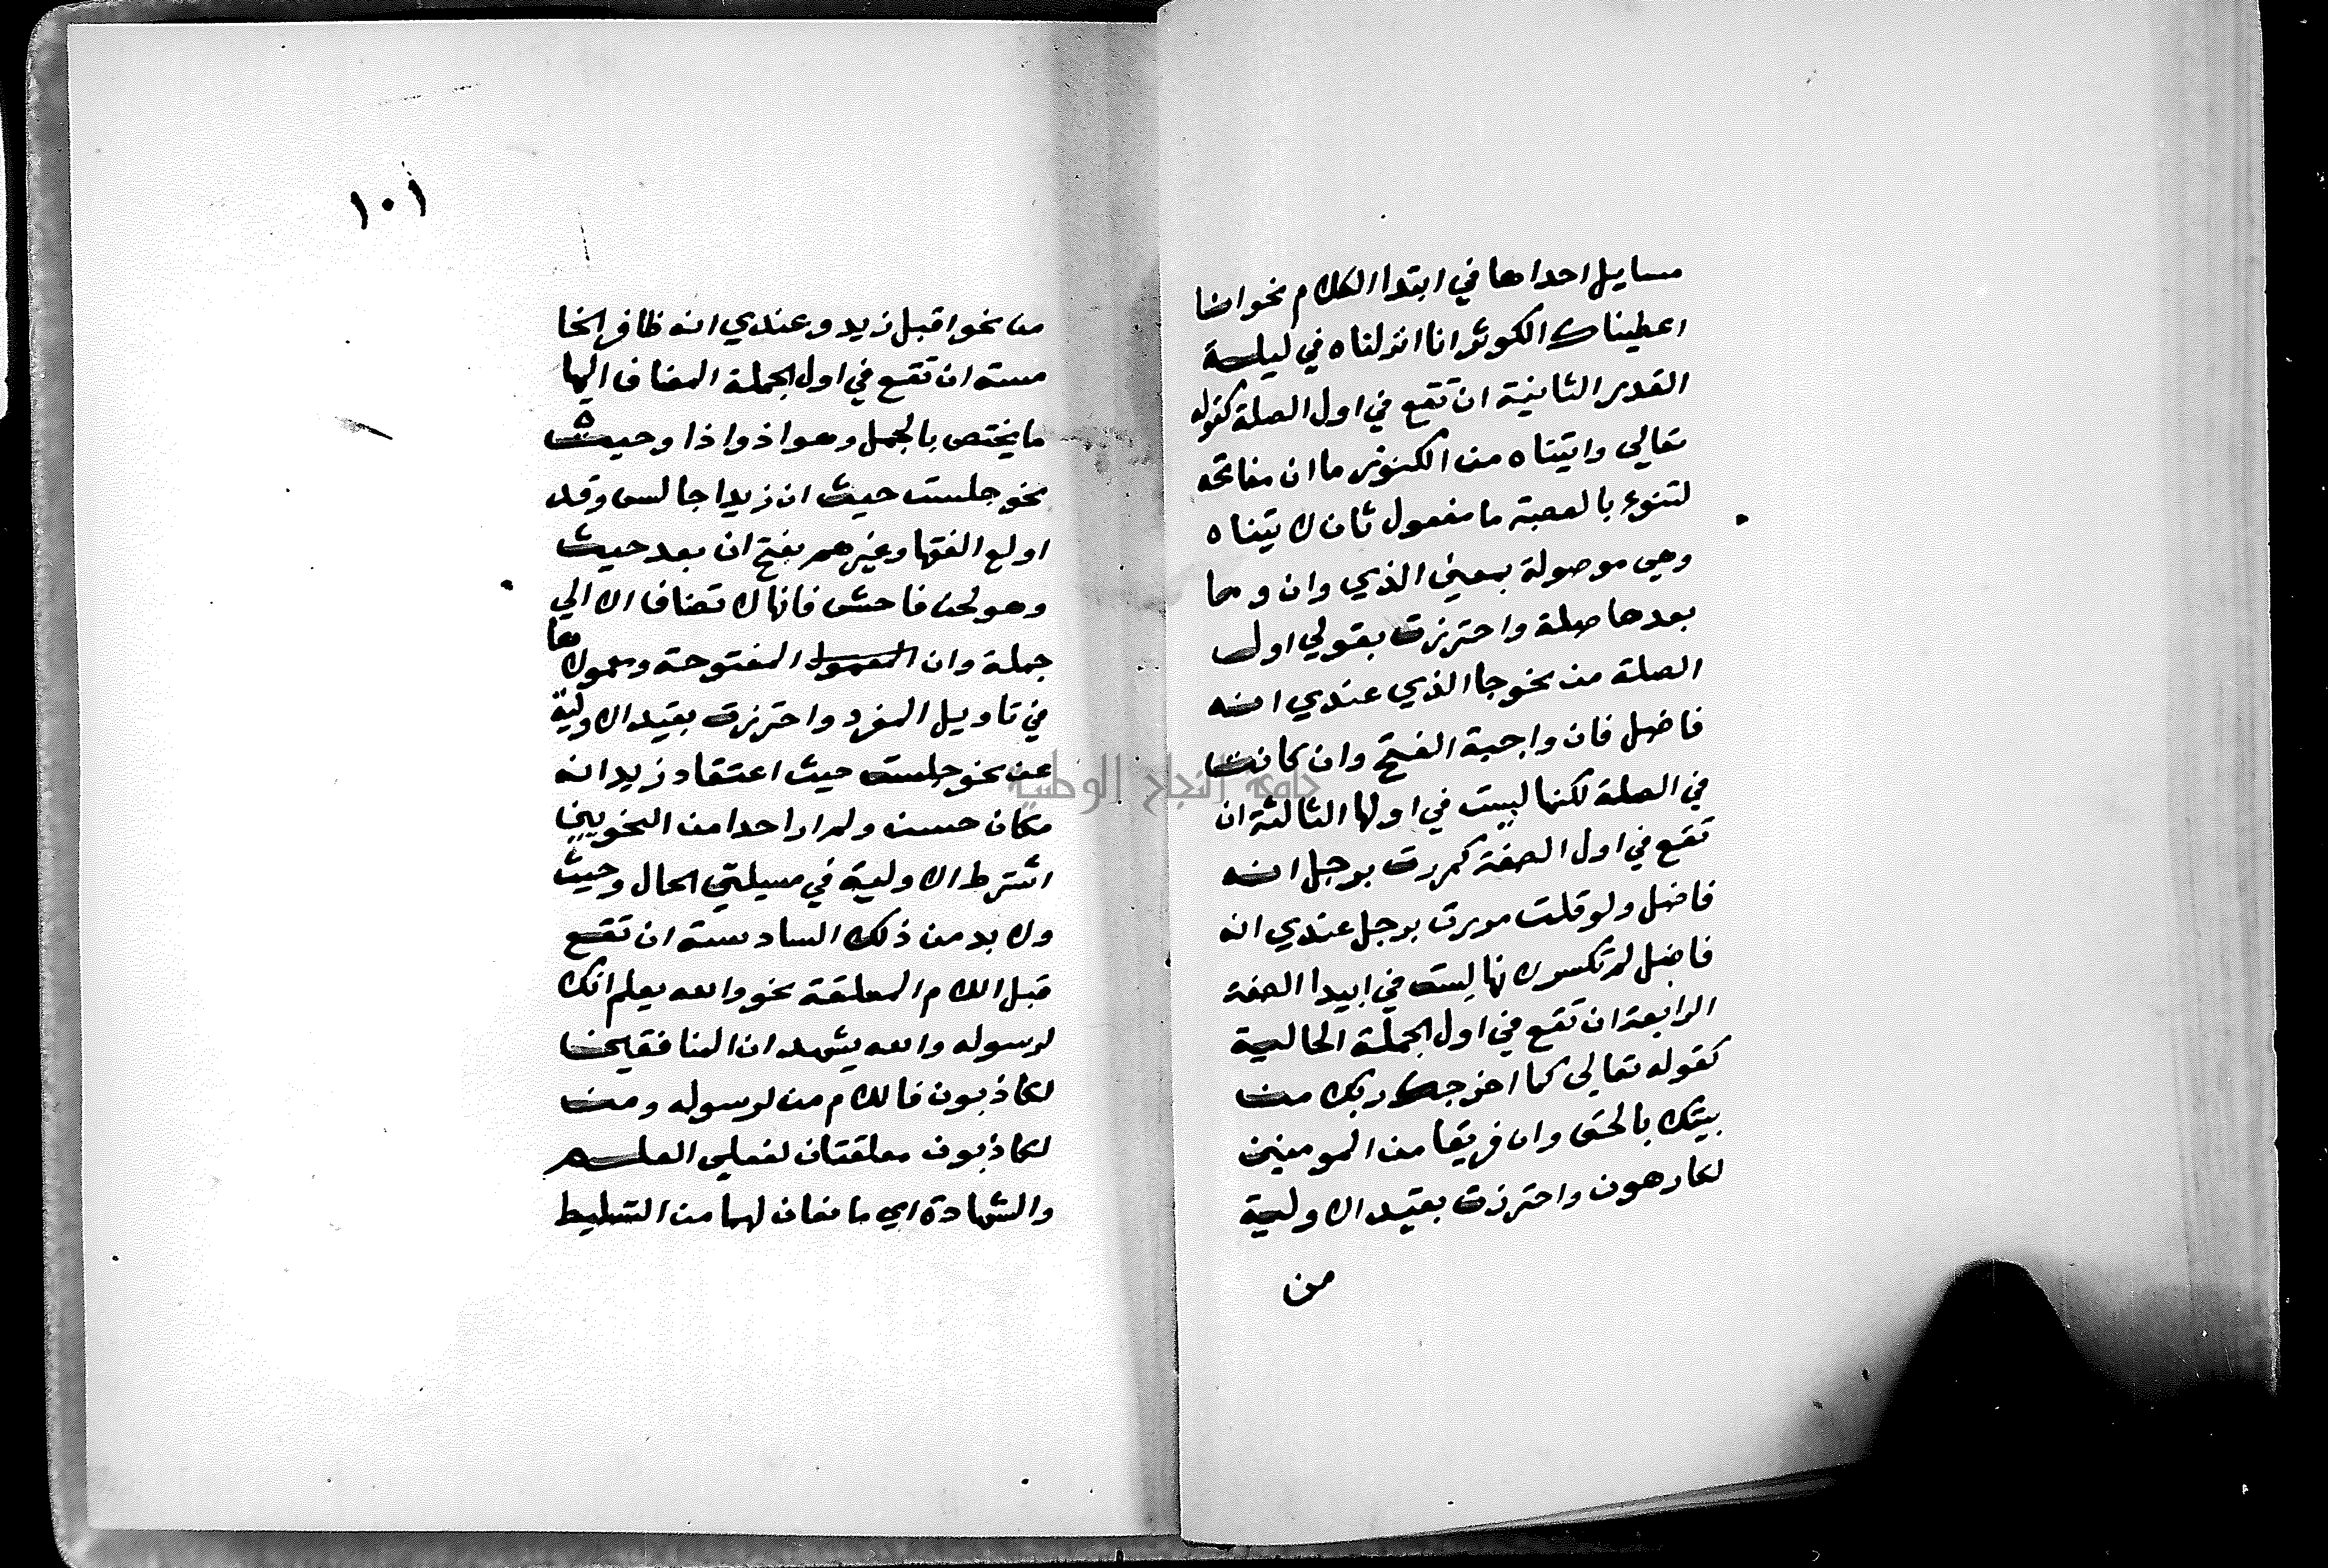 مسايل احداها في ابتدا الكلام نحو انا
اعطيناك الكوثر انا انزلناه في ليلة
القدر الثانية ان تقع في اول الصلة كقوله
تعالى واتيناه من الكنوز ما ان مفاتحه
لتنوء بالعصبة ما مفعول ثان لاتيناه
وهي موصولة بمعنى الذي وان وما
بعدها صلة واحترزت بقولي اول
الصلة من نحو جا الذي عندي انه
فاضل فان واجبة الفتح وان كانت
في الصلة لكنها ليست في اولها الثالثة ان
تقع في اول الصفة كمررت برجل انه
فاضل ولو قلت مررت برجل عندي انه
فاضل لم تكسر لانها ليست في ابيدا الصفة
الرابعة ان تقع في اول الجملة الحالية
كقوله تعالى كما اخرجك ربك من
بيتك بالحق وان فريقا من المومنين
لكارهون واحترزت بقيد الاولية
من
١٠١
من نحو اقبل زيد وعندي انه ظافر الخا
مسة ان تقع في اول الجملة المضاف اليها
ما يختص بالجمل وهو اذ واذا وحيث
نحو جلست حيث ان زيدا جالس وقد
اولع الفقها وغيرهم بفتح ان بعد حيث
وهو لحن فاحش فانها لا تضاف الا الى
جملة وان المعمول المفتوحة ومعمولاها
في تاويل المفرد واحترزت بقيد الاولية
عن نحو جلست حيث اعتقاد زيد انه
مكان حسن ولم ار احدا من النحويين
اشترط الاولية في مسيلتي الحال وحيث
ولا بد من ذلك السادسة ان تقع
قبل اللام المعلقة نحو والله يعلم انك
لرسوله والله يشهد ان المنافقين
لكاذبون فاللام من لرسوله ومن
لكاذبون معلقتان لفعلي العلم
والشهادة اي مانعان لهما من التسليط
جامعة النجاح الوطنية